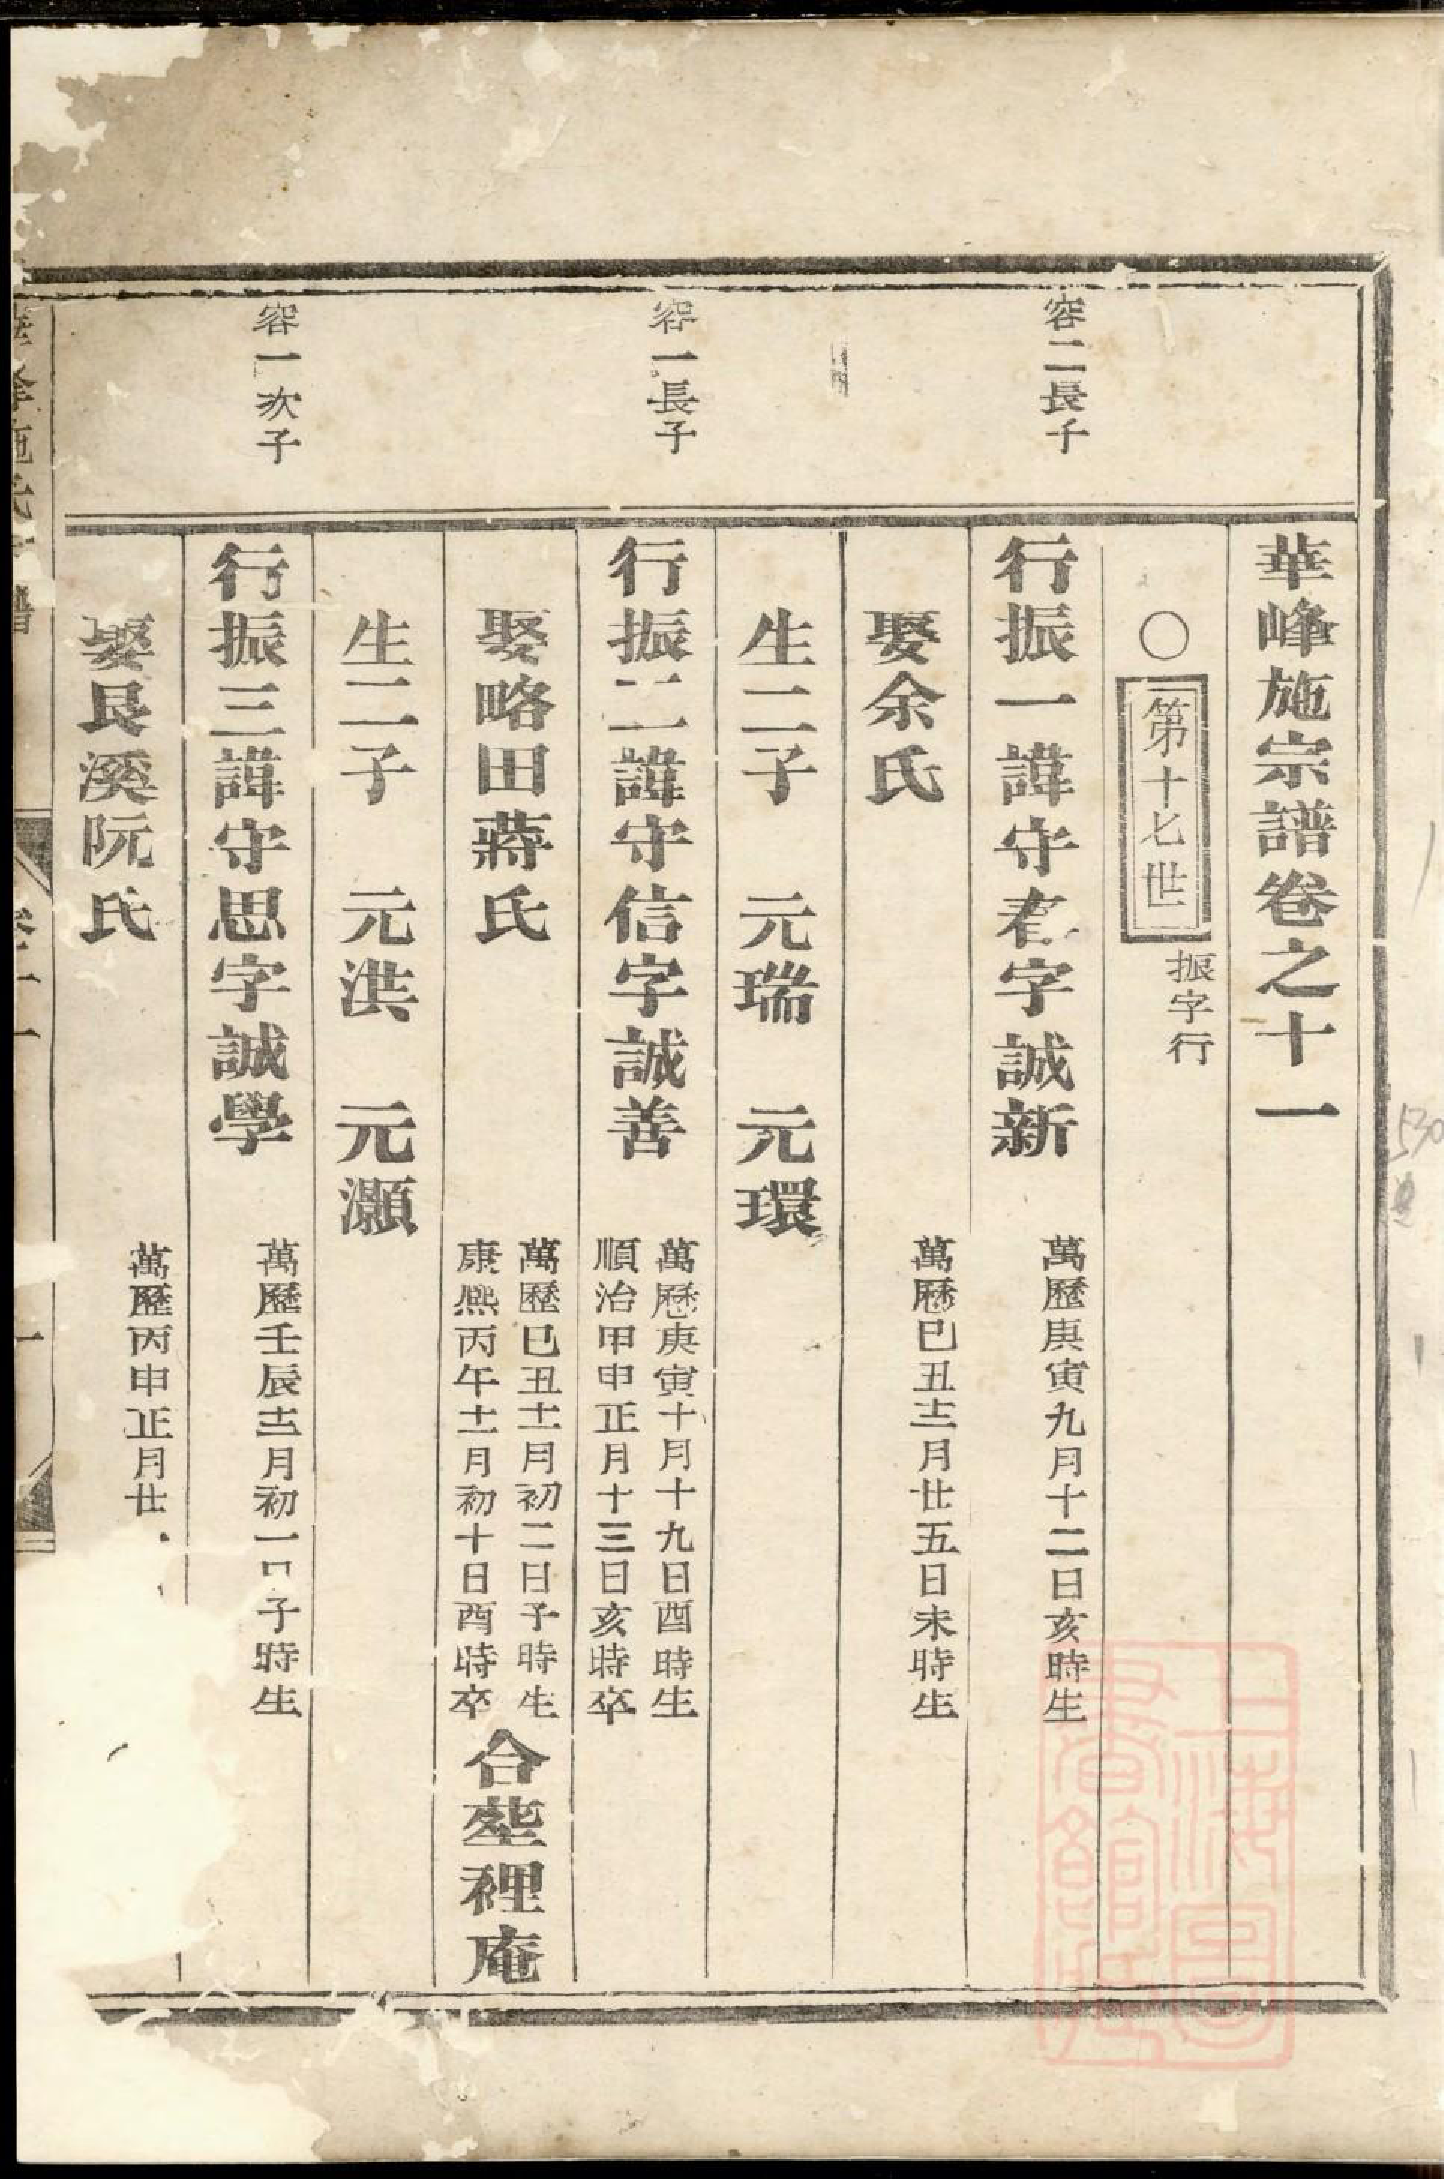 華峰施宗譜卷之十一
〇第十七世 振字行
容二長子
行振一諱守春字誠新 萬歷庚寅九月十二日亥時生
娶余氏 萬曆巳丑十二月廿五日未時生
生二子 元瑞 元環
容一長子
行振二諱守信字誠善 萬曆庚寅十月十九日酉時生
順治甲申正月十三日亥時卒
娶略田蔣氏 萬歷巳丑十一月初二日子時生
康熙丙午十一月初十日酉時卒 合塟裡庵
生二子 元洪 元灝
容一次子
行振三諱守思字誠學 萬歷壬辰十二月初一日子時生
娶艮溪阮氏 萬歷丙申正月廿
上海圖書館藏
530